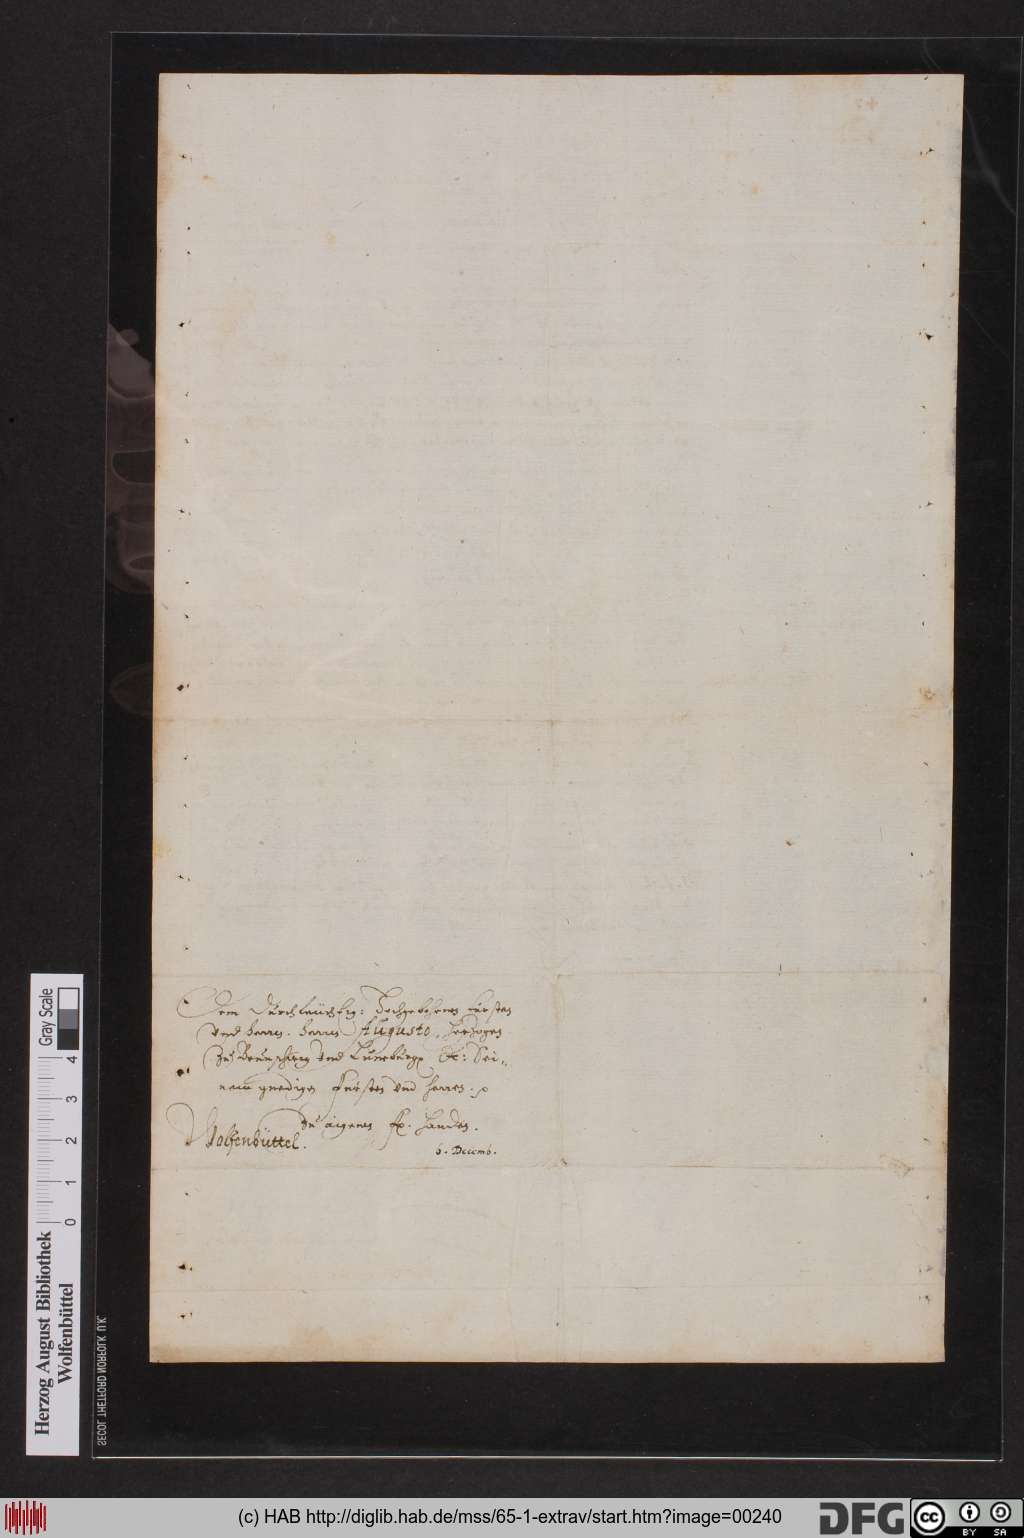 Dem Durchleuchtig: Hochgebohrnen Fürsten
vnd Herrn. Herrn Augusto, Herzogen
Zu Braunschweig vnd Lüneburg &c: Sei-
nem gnedigen Fürsten vnd Herren.
Zu aigenen fr. Handen.
Wolfenbüttel.
6. Decemb.
Herzog August Bibliothek
Wolfenbüttel
0 1 2 3 4
Gray Scale
SECOL THETFORD NORFOLK U.K.
(c) HAB http://diglib.hab.de/mss/65-1-extrav/start.htm?image=00240
DFG
cc
BY SA